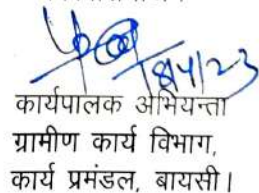 18/4/23
कार्यपालक अभियन्ता
ग्रामीण कार्य विभाग,
कार्य प्रमंडल, बायसी।